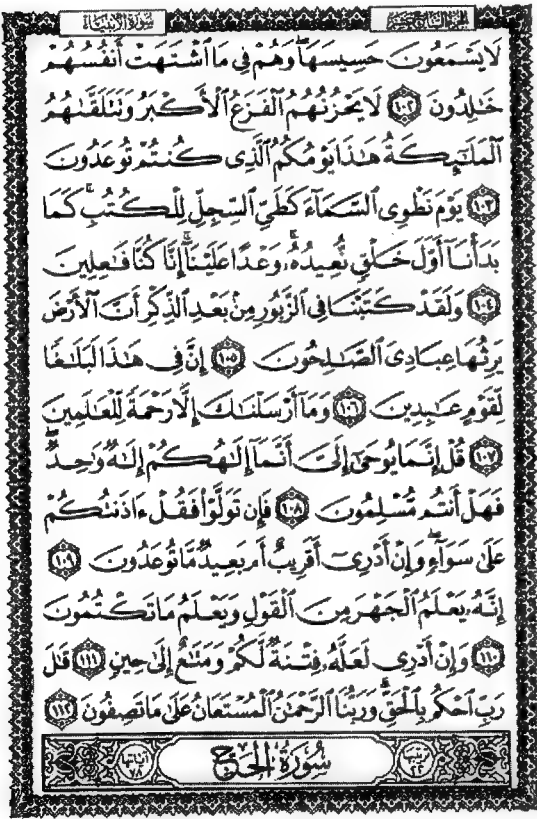 سورة الأنبياء الجزء السابع عشر
لَا يَسْمَعُونَ حَسِيسَهَا ۖ وَهُمْ فِي مَا ٱشْتَهَتْ أَنفُسُهُمْ
خَٰلِدُونَ ١٠٢ لَا يَحْزُنُهُمُ ٱلْفَزَعُ ٱلْأَكْبَرُ وَتَتَلَقَّىٰهُمُ
ٱلْمَلَٰٓئِكَةُ هَٰذَا يَوْمُكُمُ ٱلَّذِى كُنتُمْ تُوعَدُونَ
١٠٣ يَوْمَ نَطْوِى ٱلسَّمَآءَ كَطَىِّ ٱلسِّجِلِّ لِلْكُتُبِ ۚ كَمَا
بَدَأْنَآ أَوَّلَ خَلْقٍ نُّعِيدُهُۥ ۚ وَعْدًا عَلَيْنَآ ۚ إِنَّا كُنَّا فَٰعِلِينَ
١٠٤ وَلَقَدْ كَتَبْنَا فِى ٱلزَّبُورِ مِنۢ بَعْدِ ٱلذِّكْرِ أَنَّ ٱلْأَرْضَ
يَرِثُهَا عِبَادِىَ ٱلصَّٰلِحُونَ ١٠٥ إِنَّ فِى هَٰذَا لَبَلَٰغًا
لِّقَوْمٍ عَٰبِدِينَ ١٠٦ وَمَآ أَرْسَلْنَٰكَ إِلَّا رَحْمَةً لِّلْعَٰلَمِينَ
١٠٧ قُلْ إِنَّمَا يُوحَىٰٓ إِلَىَّ أَنَّمَآ إِلَٰهُكُمْ إِلَٰهٌ وَٰحِدٌ ۖ
فَهَلْ أَنتُم مُّسْلِمُونَ ١٠٨ فَإِن تَوَلَّوْا۟ فَقُلْ ءَاذَنتُكُمْ
عَلَىٰ سَوَآءٍ ۖ وَإِنْ أَدْرِىٓ أَقَرِيبٌ أَم بَعِيدٌ مَّا تُوعَدُونَ ١٠٩
إِنَّهُۥ يَعْلَمُ ٱلْجَهْرَ مِنَ ٱلْقَوْلِ وَيَعْلَمُ مَا تَكْتُمُونَ
١١٠ وَإِنْ أَدْرِى لَعَلَّهُۥ فِتْنَةٌ لَّكُمْ وَمَتَٰعٌ إِلَىٰ حِينٍ ١١١ قَٰلَ
رَبِّ ٱحْكُم بِٱلْحَقِّ ۗ وَرَبُّنَا ٱلرَّحْمَٰنُ ٱلْمُسْتَعَانُ عَلَىٰ مَا تَصِفُونَ ١١٢
ترتيبها ٢٢ سورة الحج آياتها ٧٨